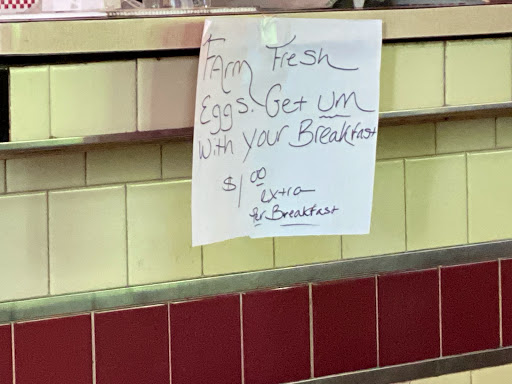 Farm Fresh
Eggs. Get um
with your Breakfast
$1.00
extra
for Breakfast